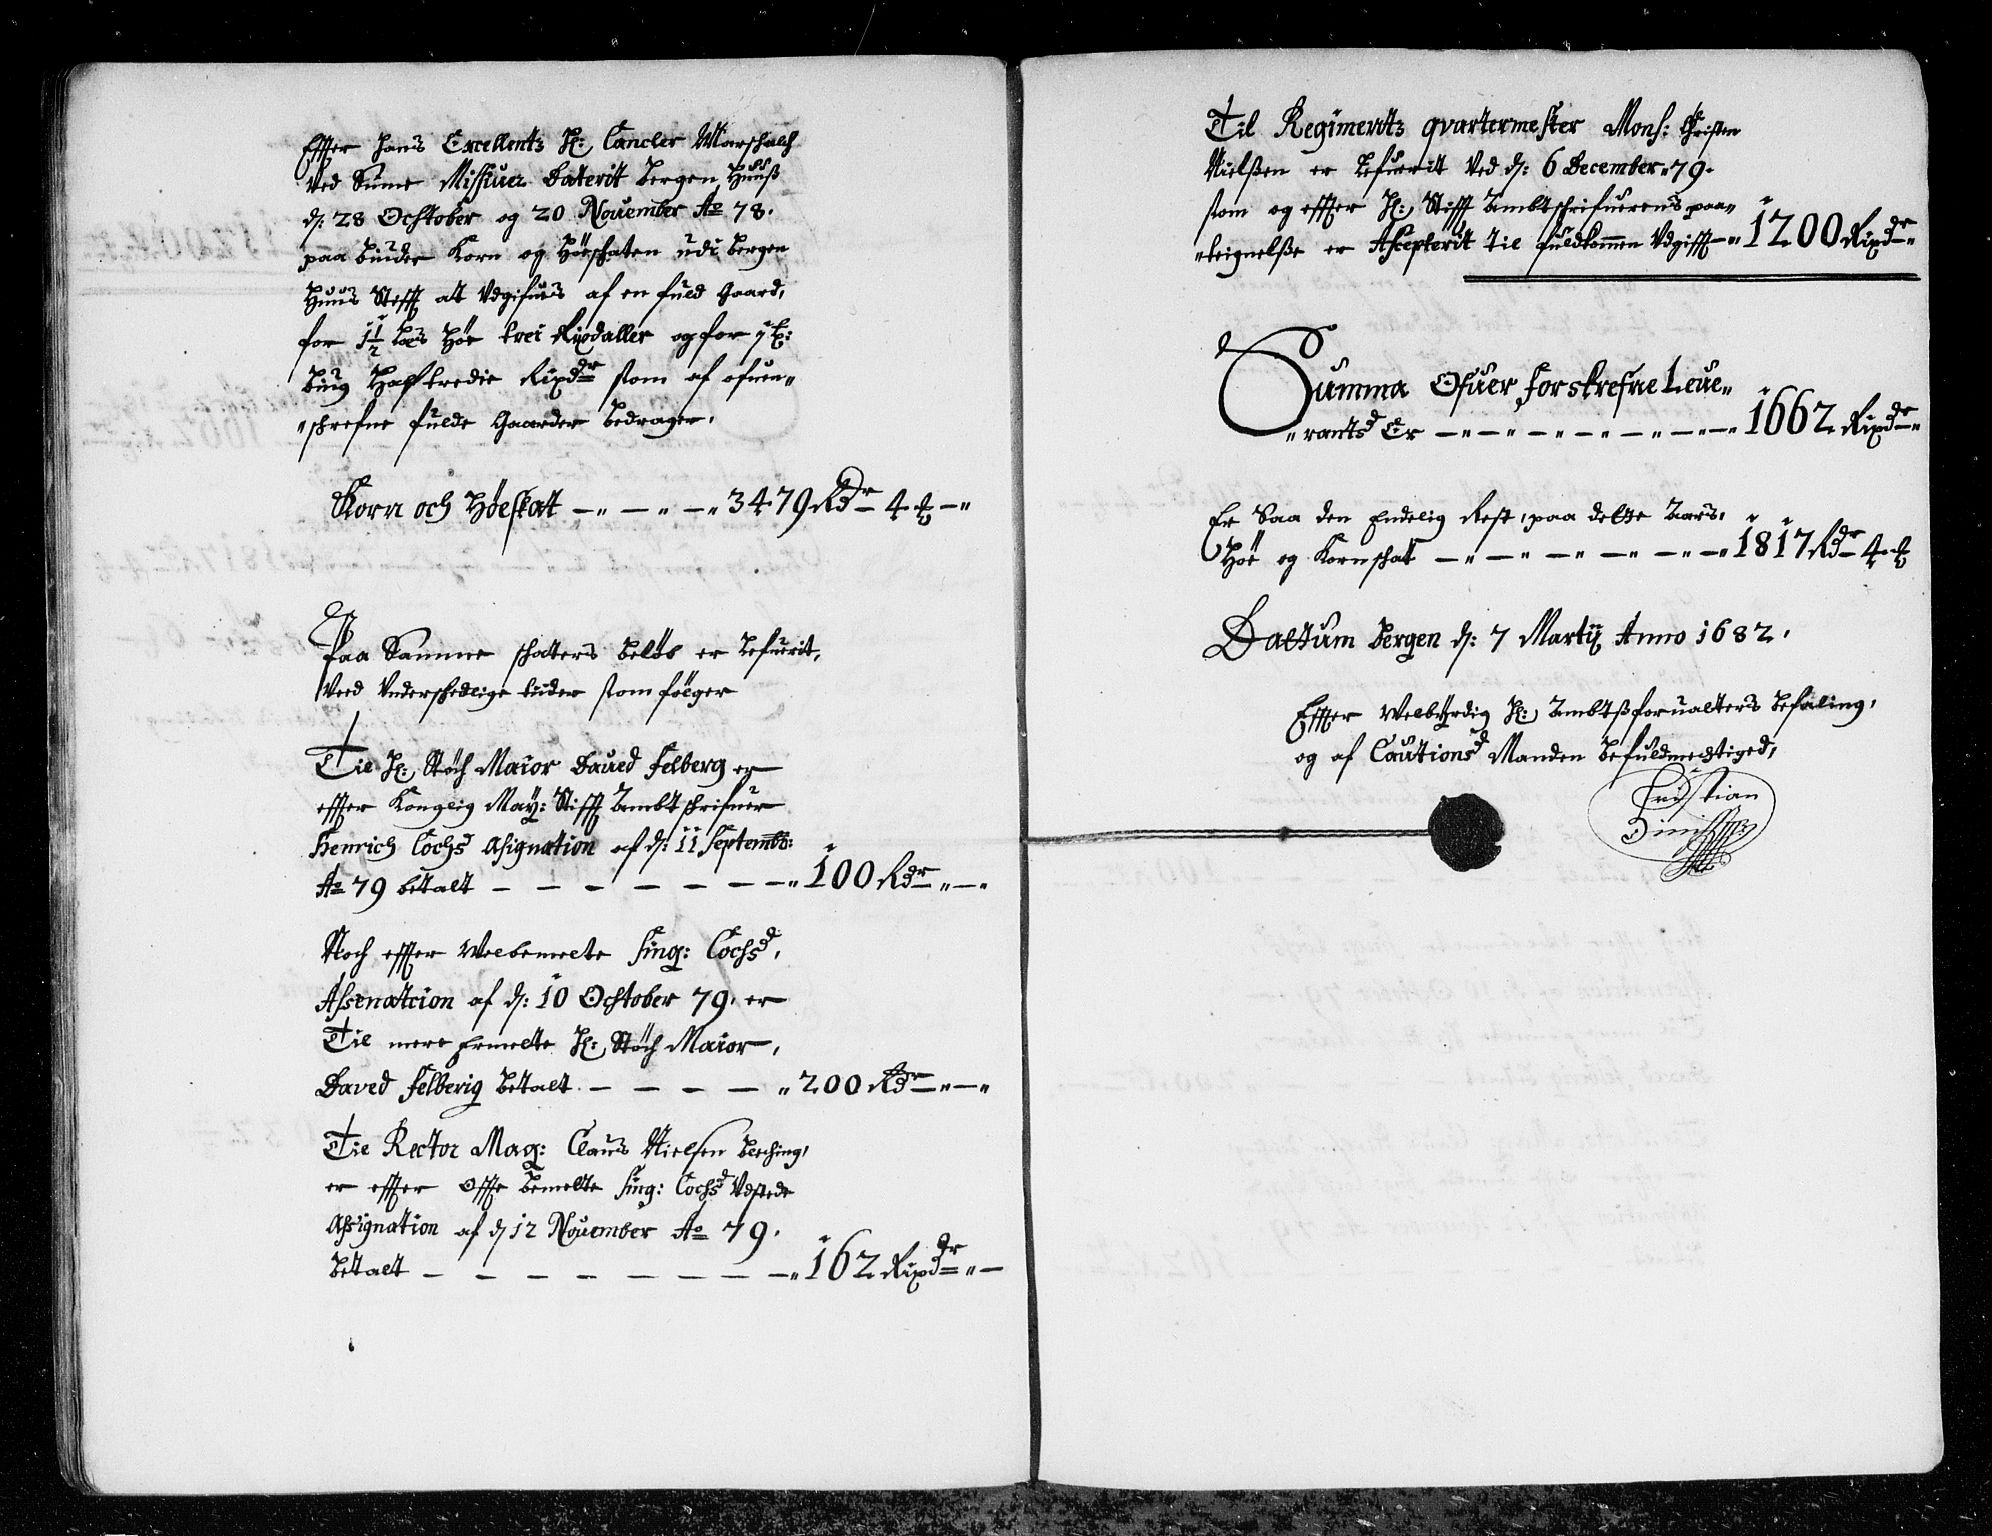 Effter Hans Excellentz H: Cancler Marschalch
Ved Sinne Missiver Daterit Bergen Huuss
d: 28 Ochtober og 20 November Ao 78.
paa bunder Korn og Höeschaten udi Bergen
Huus Stifft at Udgifves af en fuld Gaard,
for 1½ Læs Höe trei Rixdaller og for 1 T:
Bÿg Half tredie Rixdr som af ofuen-
schrefne fulde Gaarder Bedrager.
Korn och Höeskat — 3479 Rdr 4 ß
Paa Samme schatters belöb er Lefuerit,
Ved Underschedlige tiider som fölger
Til H: Stöch Maior Daued Felberg er
effter Konglig Maÿ: Stifft Ambtschrifuer
Henrich Cochs Asignation af d: 11 Septembr:
Ao 79 betalt — 100 Rdr
Noch effter Welbemelte Sing: Cochs,
Assenatcion af d: 10 Ochtober 79. er
Til mere ermelte H: Stöch Maior,
Daved Felberig betalt — 200 Rdr
Til Rector Mag: Claus Nielsen
er effter offte bemelte Sing: Cochs Udstede
Assignation af d 12 November Ao 79.
betalt — 162 Rixdr
Til Regimentz qvartermester Mons: Christen
Nielssen er Lefuerit Ved d: 6 December 79.
som og effter H: Stifft Ambtschrifuerens paa-
teignelsse er Accepterit til fuldkommen Udgifft — 1200 Rixdr
Summa Ofuer forskrefne Leue-
rants Er — 1662 Rixdr
Er Saa den Endelig Rest, paa dette Aars,
Höe og Kornschat — 1817 Rdr 4 ß
Dattum Bergen d: 7 Martij Anno 1682.
Effter Welbÿrdig H: Ambtssforvalters Befaling,
og af Cautions Manden Befuldmechtiged,
Cristian